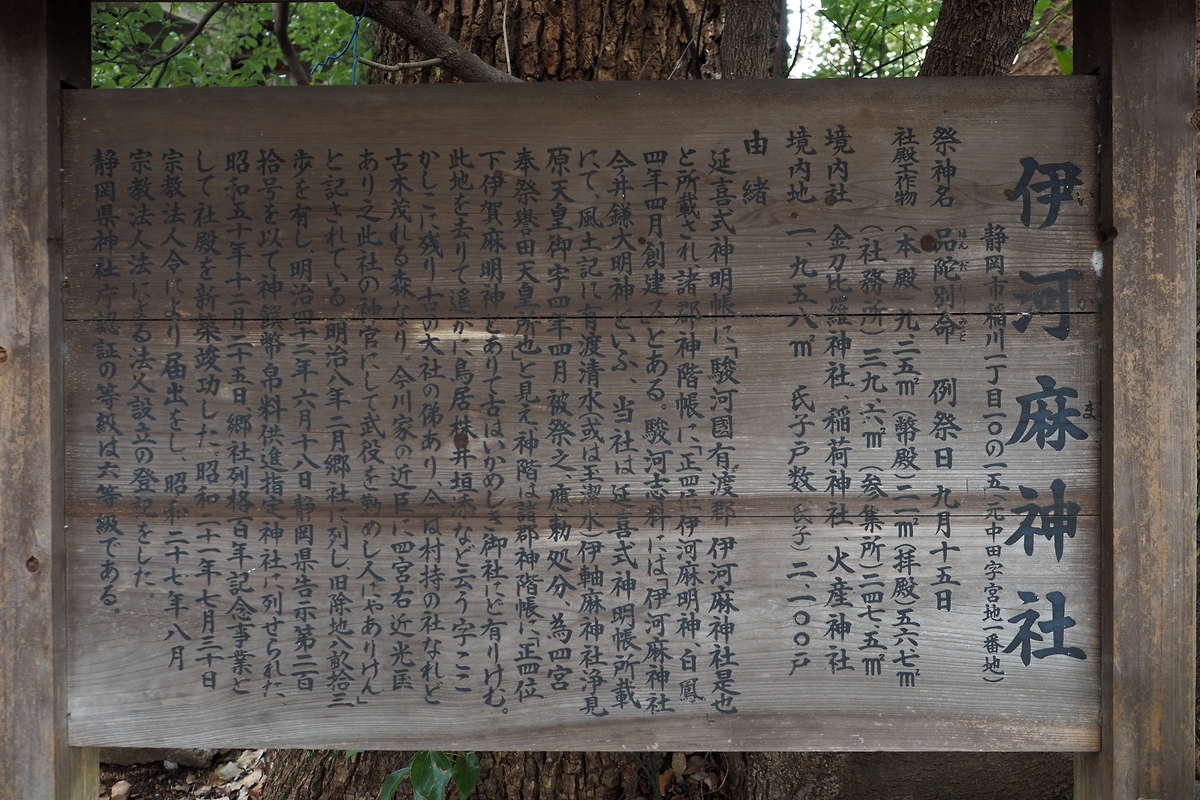 伊河麻神社
静岡市稲川一丁目一〇の一五(元中田字宮地一番地)
祭神名 品陀別命 例祭日 九月十五日
社殿工作物 (本殿)九.二五㎡(幣殿)二一㎡(拝殿)五六.七㎡
(社務所)三九.六㎡(参集所)二四七.五㎡
境内社 金刀比羅神社、稲荷神社、火産神社
境内地 一、九五八㎡ 氏子戸数(氏子)二一〇〇戸
由緒
延喜式神明帳に「駿河國有渡郡 伊河麻神社是也
と所載され諸郡神階帳に「正四に伊河麻明神 白鳳
四年四月創建スとある。駿河志料には「伊河麻神社
今井鎌大明神といふ、当社は延喜式神明帳所載
にて、風土記に有渡清水(或は玉潔水)伊軸麻神社浄見
原天皇御宇四年四月被祭之、應勅処分、為四宮
奉祭誉田天皇所也」と見え神階は諸郡神階帳に、正四位
下伊賀麻明神とありて古はいかめしき御社にど有りけむ。
此地を去りて遙かに鳥居株井垣添など云う字ここ
かしこに残り古の大社の俤あり、今は村持の社なれど
古木茂れる森なり、今川家の近臣に四宮右近光匡
あり之此社の神官にして武役を勤めし人にやありけん」
と記されている。明治八年二月郷社に列し旧除地八畝拾三
歩を有し、明治四十二年六月十八日静岡県告示第二百
拾号を以て神饌幣帛料供進指定神社に列せられた、
昭和五十年十二月二十五日郷社列格百年記念事業と
して社殿を新築竣功した。昭和二十一年七月三十日
宗教法人令により届出をし、昭和二十七年八月
宗教法人法による法人設立の登記をした。
静岡県神社庁認証の等級は六等級である。